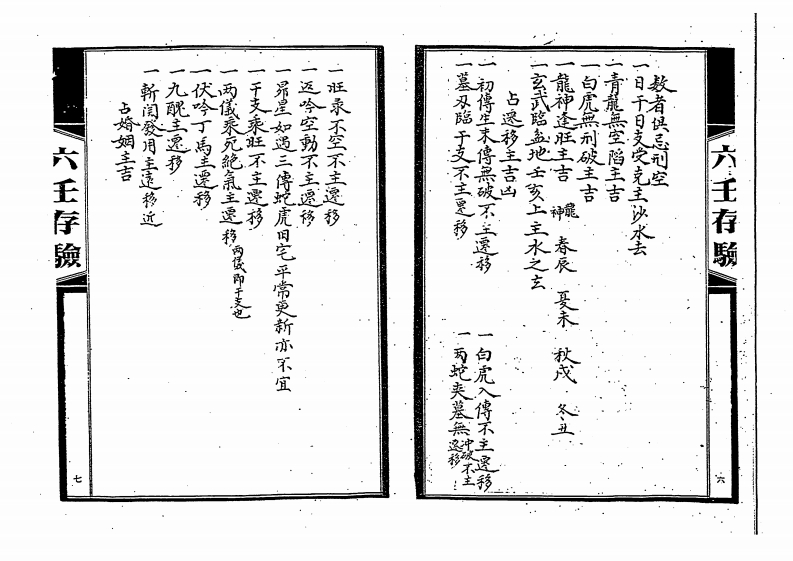 六壬存驗
六
數者俱忌刑空
一日干日支受克主沙水去
一青龍無空陷主吉
一白虎無刑破主吉
一龍神逢旺主吉 龍神 春辰 夏未 秋戌 冬丑
一玄武臨孟地壬亥上主水之玄
占遷移主吉凶
一初傳生末傳無破不主遷移
一白虎入傳不主遷移
一墓刃臨干支不主遷移
一兩蛇夾墓無冲破不主遷移
一旺乘不空不主遷移
一返吟空動不主遷移
一昴星如遇三傳蛇虎旧宅平常更新亦不宜
一干支乘旺不主遷移
一兩儀乘死絕氣主遷移 兩儀即干支也
一伏吟丁馬主遷移
一九醜主遷移
一斬関發用主遠移近
占婚姻主吉
六壬存驗
七